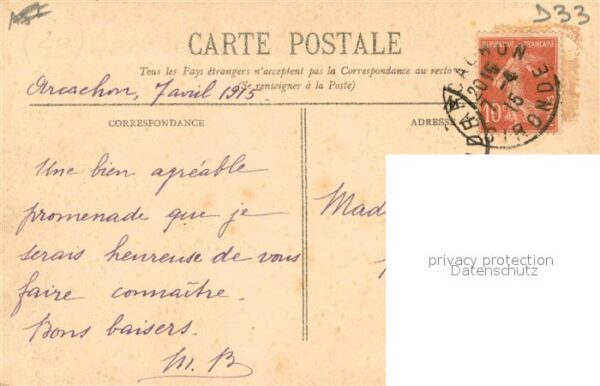 A31
D33
CARTE POSTALE
Tous les Pays étrangers n'acceptent pas la Correspondance au recto
(Se renseigner à la Poste)
Arcachon, 7 avril 1915
CORRESPONDANCE
ADRESSE
REPUBLIQUE FRANÇAISE
10c
ARCACHON
20 15
7 4
15
GIRONDE
Une bien agréable
promenade que je
serais heureuse de vous
faire connaître.
Bons baisers.
M. B
Mad
privacy protection
Datenschutz